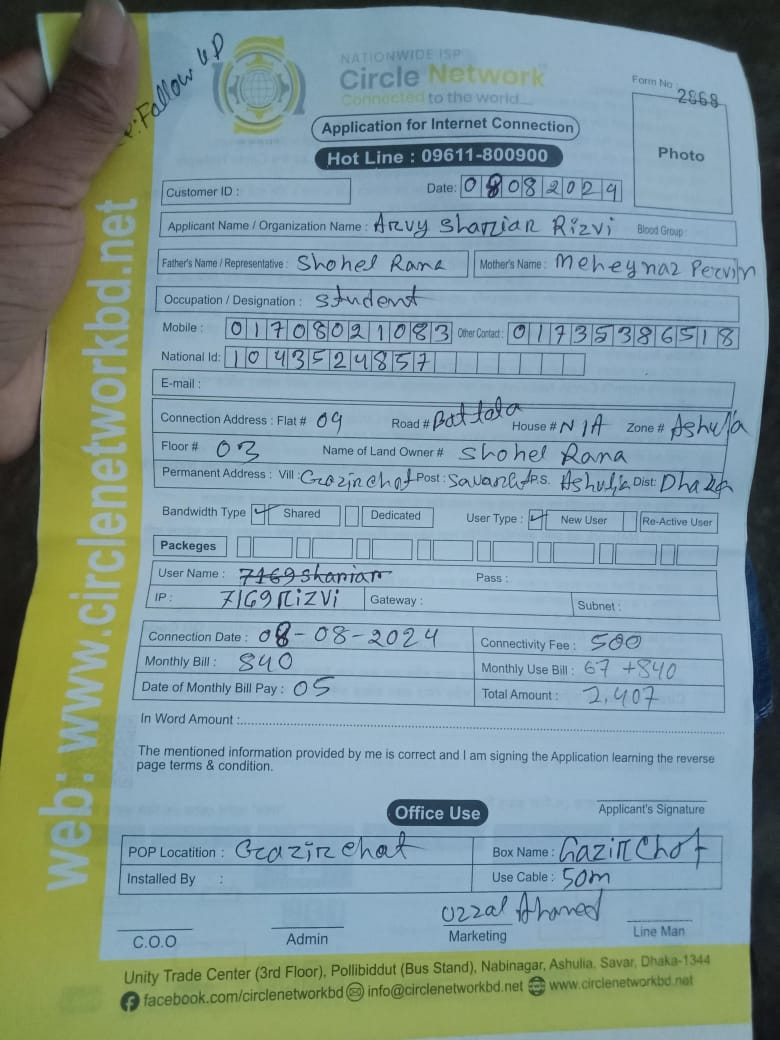 e: Follow UP
NATIONWIDE ISP
Circle Network
Connected to the world...
Form No : 2868
Application for Internet Connection
Hot Line : 09611-800900
Photo
Customer ID :
Date: 08082024
Applicant Name / Organization Name : Arvy Sharian Rizvi Blood Group :
Father's Name / Representative : Shohel Rana Mother's Name : Meheynaz Pervin
Occupation / Designation : Student
Mobile : 01708021083 Other Contact : 01735386518
National Id: 1043524857
E-mail :
Connection Address : Flat # 09 Road # Battala House # N/A Zone # Ashulia
Floor # 03 Name of Land Owner # Shohel Rana
Permanent Address : Vill : Gazirchat Post : P.S. Ashulia Dist: Dhaka
Bandwidth Type Shared Dedicated User Type : New User Re-Active User
Packeges
User Name : 7169sharian Pass :
IP : 7169rizvi Gateway : Subnet :
Connection Date : 08-08-2024 Connectivity Fee : 500
Monthly Bill : 840 Monthly Use Bill : 67 +840
Date of Monthly Bill Pay : 05 Total Amount : 2,407
In Word Amount :
The mentioned information provided by me is correct and I am signing the Application learning the reverse
page terms & condition.
Office Use
Applicant's Signature
POP Locatition : Gazirchat Box Name : Gazirchot
Installed By : Use Cable : 50m
Uzzal Ahamed
C.O.O Admin Marketing Line Man
Unity Trade Center (3rd Floor), Pollibiddut (Bus Stand), Nabinagar, Ashulia, Savar, Dhaka-1344
facebook.com/circlenetworkbd info@circlenetworkbd.net www.circlenetworkbd.net
web: www.circlenetworkbd.net